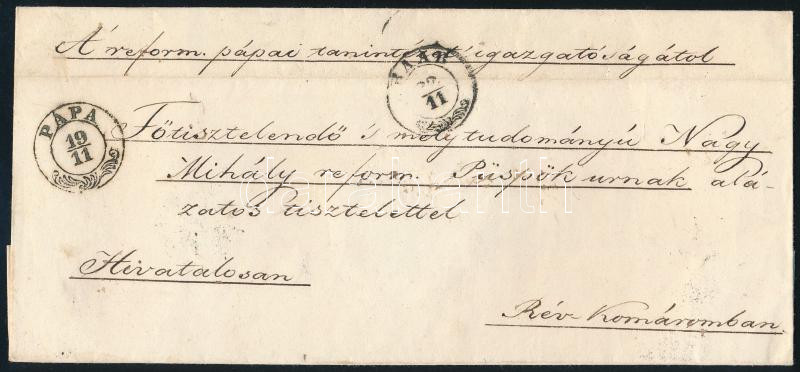 A reform. pápai tanintézet igazgatóságátol
RAAB
11
PÁPA
19
11
Főtisztelendő és mélytudományú Nagy
Mihály reform. Püspök urnak alá-
zatos tisztelettel
Hivatalosan
Rév-Komáromban.